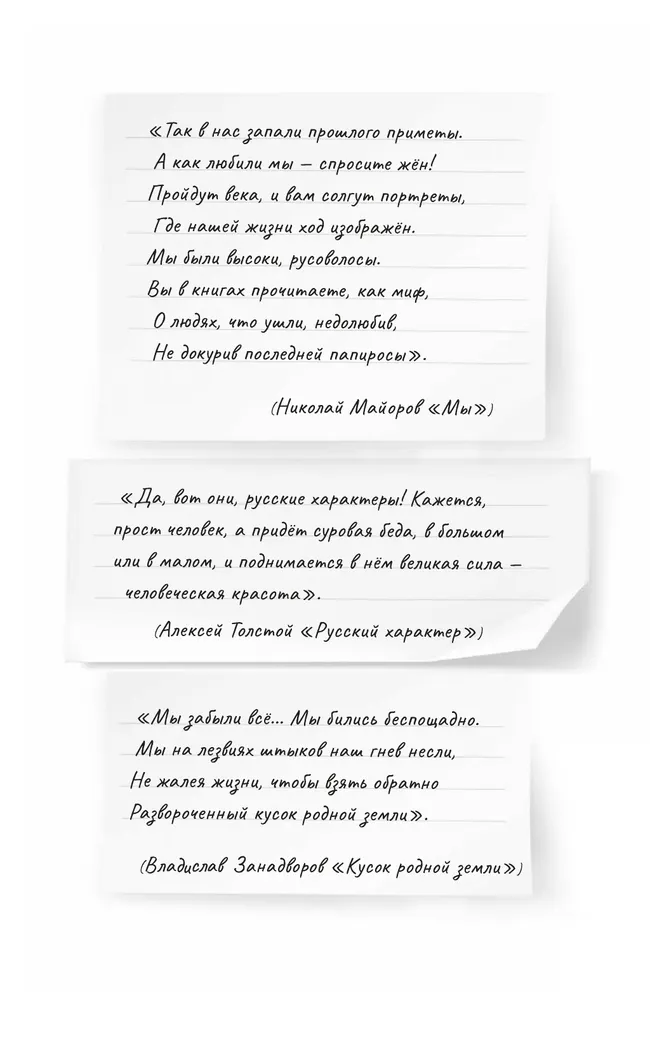 «Так в нас запали прошлого приметы.
А как любили мы – спросите жён!
Пройдут века, и вам солгут портреты,
Где нашей жизни ход изображён.
Мы были высоки, русоволосы.
Вы в книгах прочитаете, как миф,
О людях, что ушли, недолюбив,
Не докурив последней папиросы».
(Николай Майоров «Мы»)
«Да, вот они, русские характеры! Кажется,
прост человек, а придёт суровая беда, в большом
или в малом, и поднимается в нём великая сила –
человеческая красота».
(Алексей Толстой «Русский характер»)
«Мы забыли всё... Мы бились беспощадно.
Мы на лезвиях штыков наш гнев несли,
Не жалея жизни, чтобы взять обратно
Развороченный кусок родной земли».
(Владислав Занадворов «Кусок родной земли»)